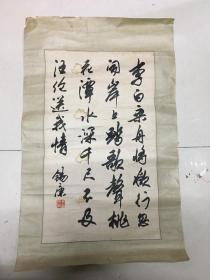 李白乘舟将欲行忽
闻岸上踏歌聲桃
花潭水深千尺不及
汪伦送我情 锡康